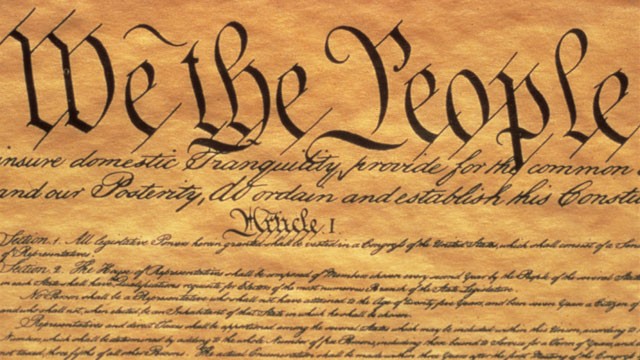 We the People
insure domestic Tranquility, provide for the common
and our Posterity, do ordain and establish this Constitu
Article. I.
Section. 1. All legislative Powers herein granted shall be vested in a Congress of the United States, which shall consist of a Sen
of Representatives.
Section. 2. The House of Representatives shall be composed of Members chosen every second Year by the People of the several States
in each State shall have Qualifications requisite for Electors of the most numerous Branch of the State Legislature.
No Person shall be a Representative who shall not have attained to the Age of twenty five Years, and been seven Years a Citizen of
and who shall not, when elected, be an Inhabitant of that State in which he shall be chosen.
Representatives and direct Taxes shall be apportioned among the several States which may be included within this Union, according to
which shall be determined by adding to the whole Number of free Persons, including those bound to Service for a Term of Years, and
three fifths of all other Persons. The actual Enumeration shall be made within three Years after the first